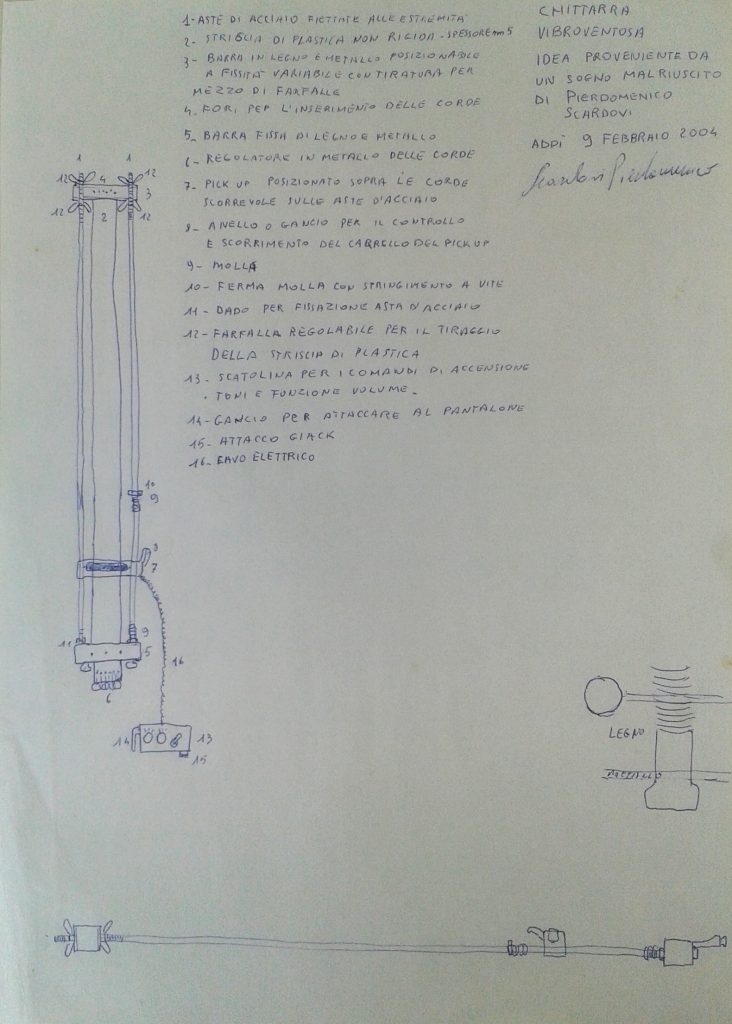 1- ASTE DI ACCIAIO FILETTATE ALLE ESTREMITÀ
2- STRISCIA DI PLASTICA NON RIGIDA - SPESSORE mm 5
3- BARRA IN LEGNO E METALLO POSIZIONABILE
A FISSITÀ VARIABILE CON TIRATURA PER
MEZZO DI FARFALLE
4- FORI PER L'INSERIMENTO DELLE CORDE
5- BARRA FISSA DI LEGNO E METALLO
6- REGOLATORE IN METALLO DELLE CORDE
7- PICK UP POSIZIONATO SOPRA LE CORDE
SCORREVOLE SULLE ASTE D'ACCIAIO
8- ANELLO O GANCIO PER IL CONTROLLO
E SCORRIMENTO DEL CARRELLO DEL PICK UP
9- MOLLA
10- FERMA MOLLA CON STRINGIMENTO A VITE
11- DADO PER FISSAZIONE ASTA D'ACCIAIO
12- FARFALLA REGOLABILE PER IL TIRAGGIO
DELLA STRISCIA DI PLASTICA
13- SCATOLINA PER I COMANDI DI ACCENSIONE
. TONI E FUNZIONE VOLUME -
14- GANCIO PER ATTACCARE AL PANTALONE
15- ATTACCO GIACK
16- CAVO ELETTRICO
CHITTARRA
VIBROVENTOSA
IDEA PROVENIENTE DA
UN SOGNO MALRIUSCITO
DI PIERDOMENICO
SCARDOVI
ADDÌ 9 FEBBRAIO 2004
Scardovi Pierdomenico
1 1
12 4 12
3
12 2 12
10
9
8
7
11 9
5
6
16
14 13
15
LEGNO
METALLO